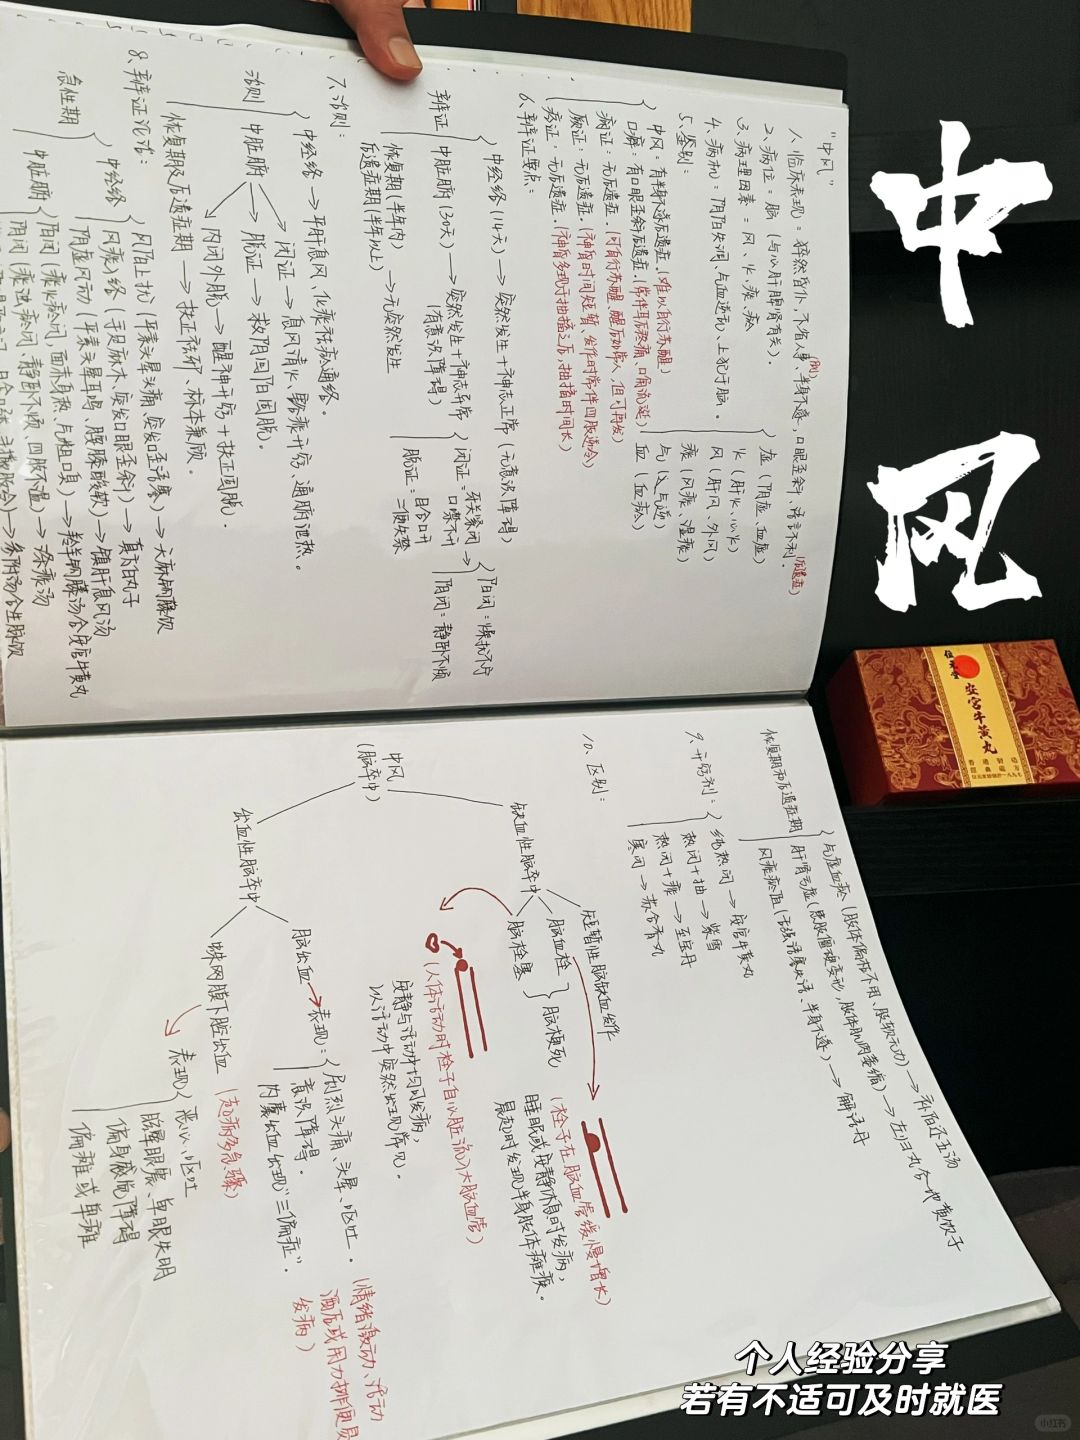 中风
"中风"
1、临床表现:猝然昏仆,不省人事,半身不遂,口眼歪斜,语言不利。
(后遗症)
2、病位:脑(与心肝脾肾有关)。
3、病理因素:风、火、痰、瘀
虚(阴虚、血虚)
火(肝火、心火)
风(肝风、外风)
痰(风痰、湿痰)
气(气逆)
血(血瘀)
4、病机:阴阳失调、气血逆乱、上犯于脑。
5、鉴别:
中风:有半身不遂后遗症。(难以自行苏醒)
口僻:有口眼歪斜后遗症。(常伴耳后疼痛、口角流涎)
痫证:无后遗症。(可自行苏醒、醒后如常人,但可再发)
厥证:无后遗症。(神昏时间短暂、发作时常伴四肢逆冷)
痉证:无后遗症。(神昏多现于抽搐之后,抽搐时间长)
6、辨证要点:
辨证
中经络(14天)→突然发生+神志正常(无意识障碍)
中脏腑(30天)→突然发生+神志异常
(有意识障碍)
闭证:牙关紧闭 口噤不开
阳闭:燥扰不宁
阴闭:静卧不烦
脱证:目合口开 二便失禁
恢复期(半年内)
后遗症期(半年以上)→无突然发生
7、治则:
治则
中经络→平肝息风、化痰祛瘀通络。
中脏腑
闭证→息风清火、豁痰开窍、通腑泄热。
脱证→救阴回阳固脱。
内闭外脱→醒神开窍+扶正固脱。
恢复期及后遗症期→扶正祛邪、标本兼顾。
8、辨证论治:
急性期
中经络
风阳上扰(平素头晕头痛、突发口歪语蹇)→天麻钩藤饮
风痰入络(手足麻木、突发口眼歪斜)→真方白丸子
阴虚风动(平素头晕耳鸣、腰膝酸软)→镇肝息风汤
中脏腑
阳闭(痰火瘀闭、面赤身热、气粗口臭)→羚羊钩藤汤合安宫牛黄丸
阴闭(痰浊瘀闭、静卧不烦、四肢不温)→涤痰汤
→参附汤合生脉饮
恢复期和后遗症期
气虚血瘀(肢体偏枯不用、肢软无力)→补阳还五汤
肝肾亏虚(患肢僵硬变形、肢体肌肉萎缩)→左归丸合地黄饮子
风痰瘀阻(舌强语蹇失语、半身不遂)→解语丹
9、开窍剂:
纯热闭→安宫牛黄丸
热闭+抽→紫雪
热闭+痰→至宝丹
寒闭→苏合香丸
10、区别:
中风
(脑卒中)
缺血性脑卒中
短暂性脑缺血发作
脑血栓
脑栓塞
脑梗死
(栓子在脑血管缓慢增长)
睡眠或安静休息时发病,
晨起时发现半身肢体瘫痪。
(人体活动时栓子自心脏流入大脑血管)
安静与活动中均可发病,
以活动中突然出现常见。
出血性脑卒中
脑出血→表现:
剧烈头痛、头晕、呕吐。
意识障碍。
内囊出血出现"三偏症"。
(情绪激动、活动
酒后或用力排便易
发病)
蛛网膜下腔出血
(起病多急骤)
表现
恶心、呕吐
眩晕眼震、单眼失明
偏身感觉障碍
偏瘫或单瘫
位元堂
安宫牛黄丸
个人经验分享
若有不适可及时就医
小红书